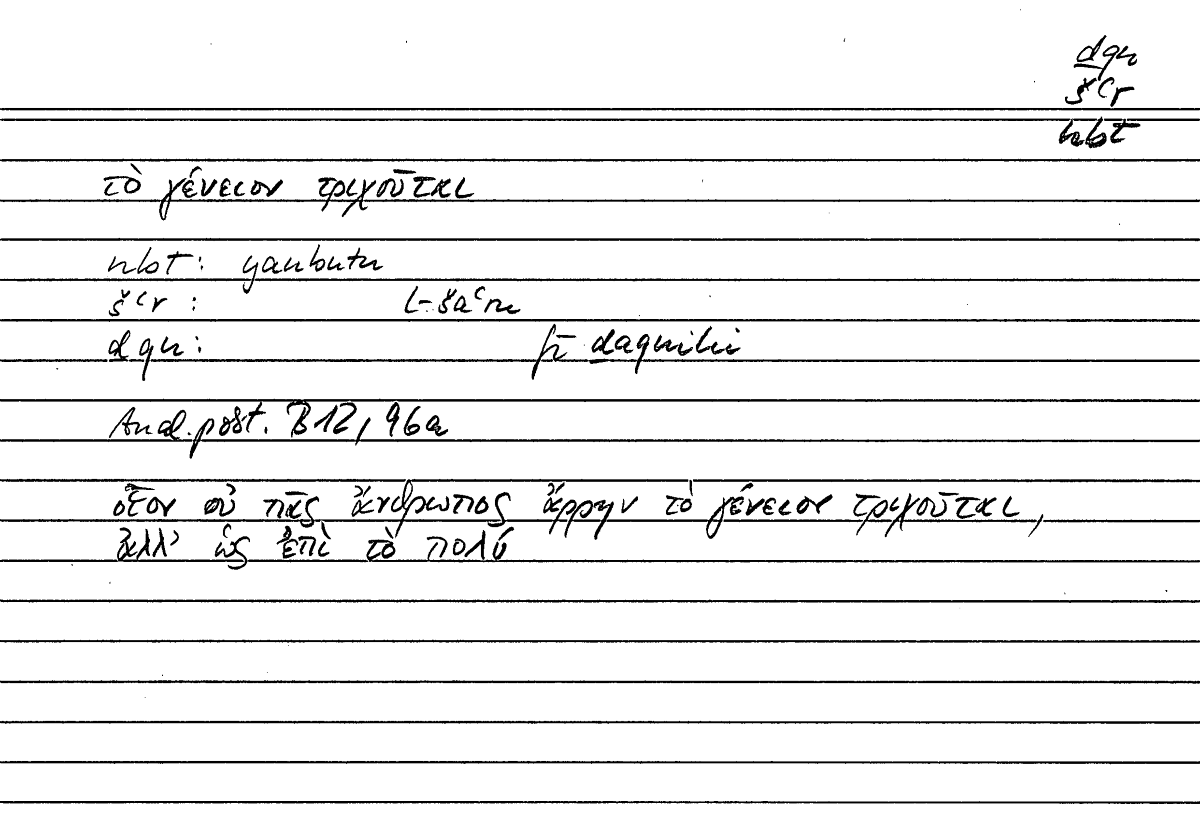 ḏqn
šʿr
nbt
τὸ γένειον τριχοῦται
nbt: yanbutu
šʿr: l-šaʿru
ḏqn: fī ḏaqnihi
Anal. post. B12, 96a
οἷον οὐ πᾶς ἄνθρωπος ἄρρην τὸ γένειον τριχοῦται,
ἀλλ' ὡς ἐπὶ τὸ πολύ